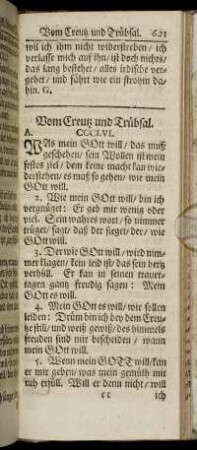 Vom Creutz und Trübsal. 621
wil ich ihm nicht widerstreben/ ich
verlasse mich auf ihn/ ist doch nichts/
das lang bestehet/ alles irdische ver-
gehet/ und fährt wie ein strohm da-
hin. G.
Vom Creutz und Trübsal.
A. CCCLVI.
WAs mein GOtt will/ das muß
geschehen/ sein Wollen ist mein
festes ziel/ dem keine macht kan wie-
derstehen/ es muß so gehen/ wie mein
GOtt will.
2. Wie mein GOtt will/ bin ich
vergnüget: Er geb mir wenig oder
viel. Sein wahres wort/ so nimmer
trüget/ sagt/ daß der sieget/ der/ wie
GOtt will.
3. Der wie GOtt will/ wird nim-
mer klagen/ kein leid ist/ das sein hertz
verhüll. Er kan in seinen traurer-
tagen gantz freudig sagen: Mein
GOtt es will.
4. Mein GOtt es will/ wir sollen
leiden: Drüm bin ich bey dem Creu-
tze still/ und weiß gewiß/ des himmels
freuden sind mir bescheiden/ wann
mein GOtt will.
5. Wenn mein GOTT will/ kan
er mir geben/ was mein gemüth mit
ruh erfüll. Will er denn nicht/ will
cc ich